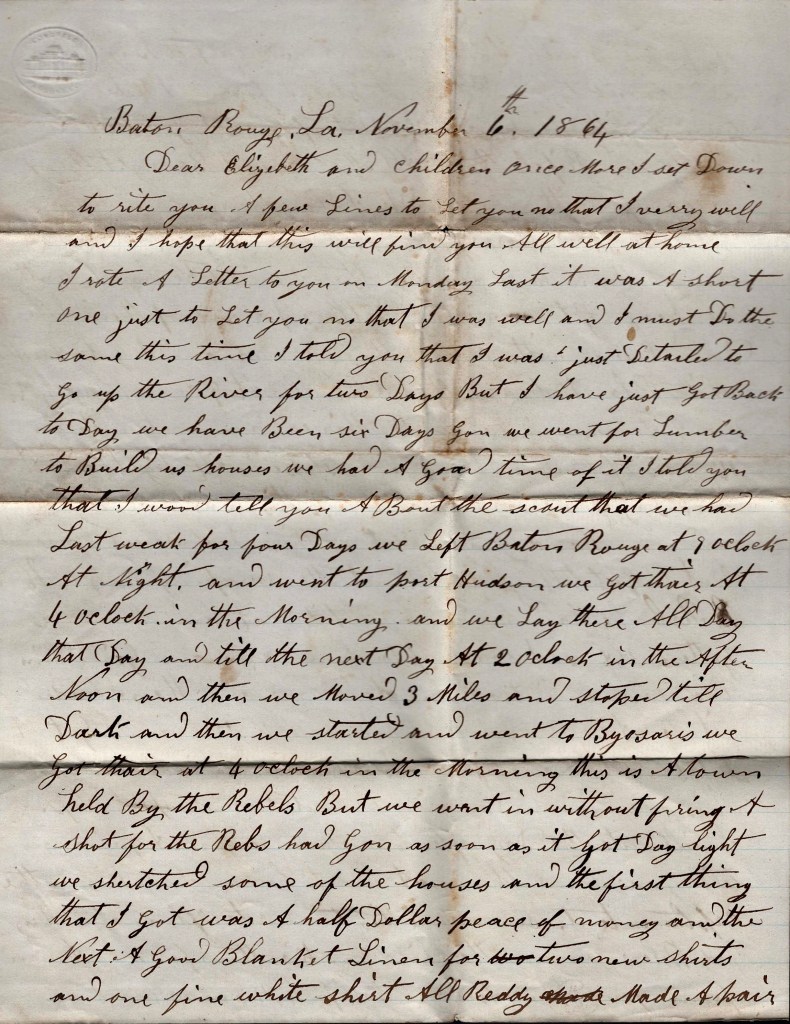 Baton Rouge, La, November 6th. 1864
Dear Elizebeth and children once More I set Down
to rite you A few Lines to Let you no that I verry will
and I hope that this will find you All well at home
I rote A Letter to you on Monday Last it was A short
one just to Let you no that I was well and I must Do the
same this time I told you that I was just Detailed to
Go up the River for two Days But I have just Got Back
to Day we have Been six Days Gon we went for Lumber
to Build us houses we had A Good time of it I told you
that I wood tell you A Bout the scout that we had
Last weak for four Days we Left Baton Rouge at 9 oclock
At Night. and went to port Hudson we Got thair At
4 oclock in the Morning. and we Lay there All Day
that Day and till the next Day At 2 oclock in the After
Noon and then we Moved 3 Miles and stoped till
Dark and then we started and went to Byosaris we
Got thair at 4 oclock in the Morning this is A town
held By the Rebels But we went in without firing A
shot for the Rebs had Gon as soon as it Got Day light
we shertched some of the houses and the first thing
that I Got was A half Dollar peace of money and the
Next A Good Blanket Linen for two new shirts
and one fine white shirt All Reddy Made A pair